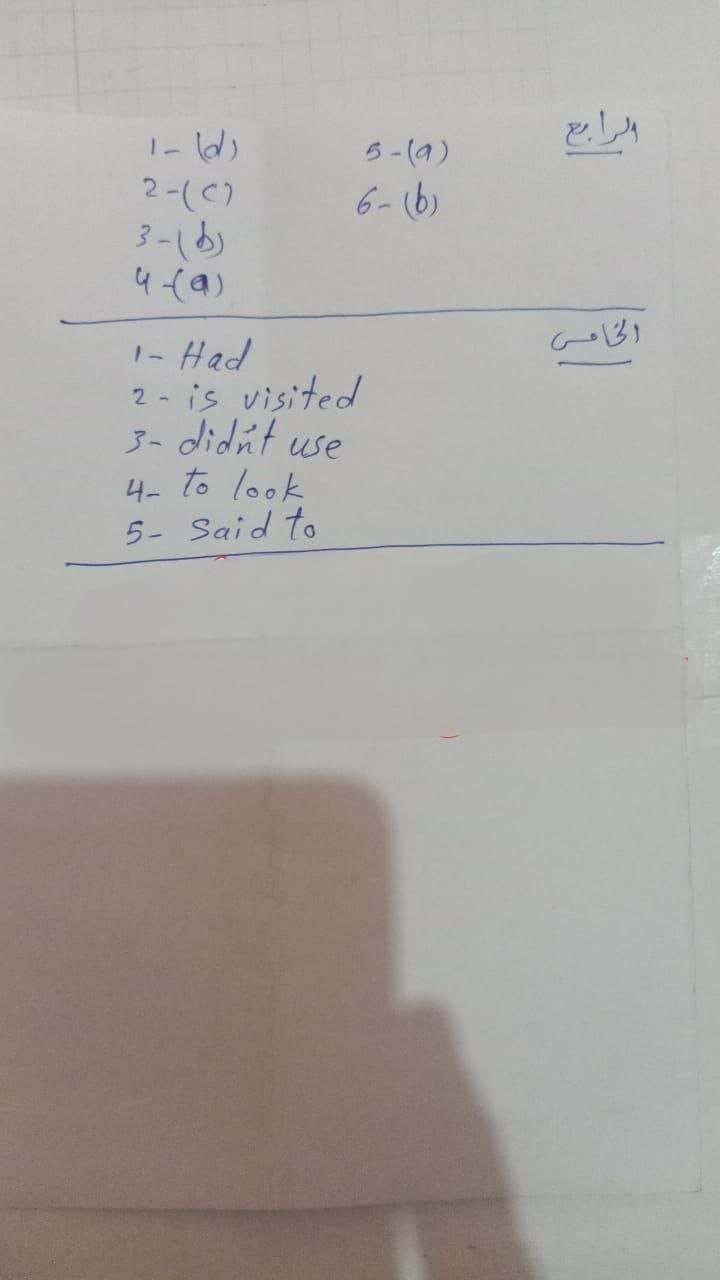 الرابع
1- (d) 5-(a)
2-(c) 6-(b)
3-(b)
4-(a)
الخامس
1- Had
2- is visited
3- didn't use
4- to look
5- Said to